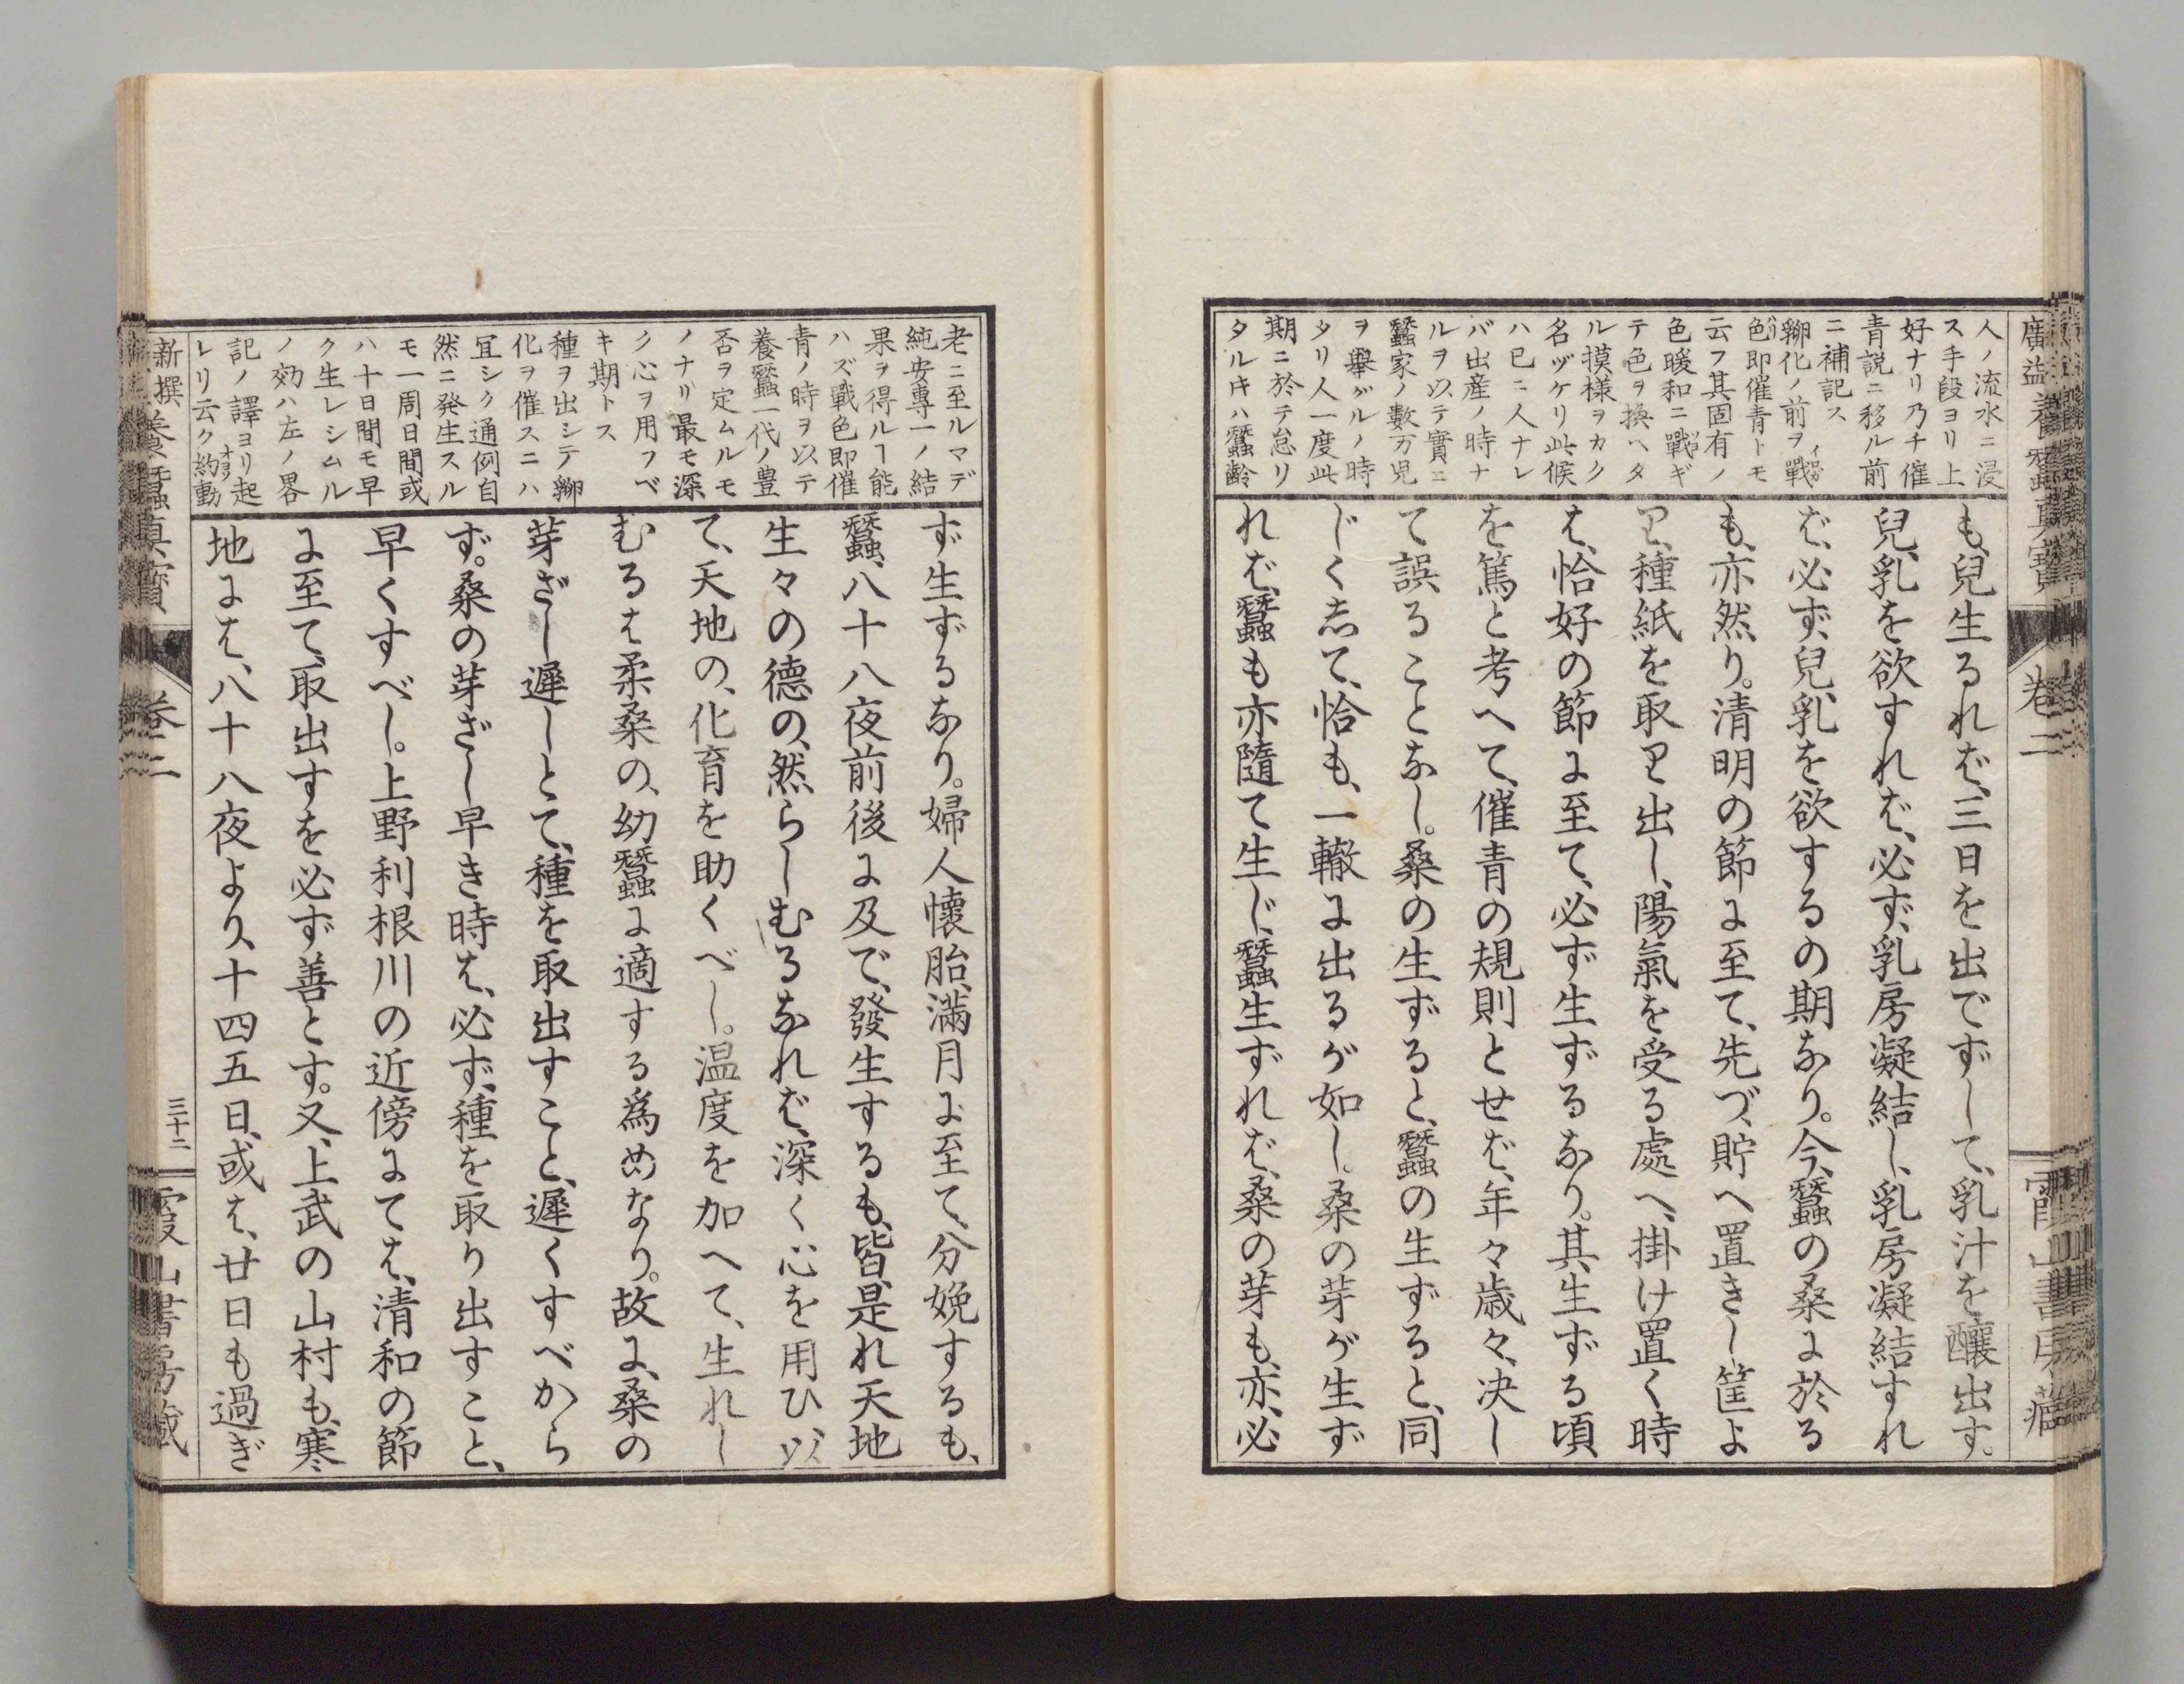 人ノ流水ニ浸
ス手段ヨリ上
好ナリ乃チ催
青説ニ移ル前
ニ補記ス
孵化ノ前ヲ戰
色即催青トモ
云フ其固有ノ
色暖和ニ戰ギ
テ色ヲ換ヘタ
ル摸様ヲカク
名ヅケリ此候
ハ已ニ人ナレ
バ出産ノ時ナ
ルヲ以テ實ニ
蠶家ノ數万児
ヲ擧グルノ時
タリ人一度此
期ニ於テ怠リ
タルキハ蠶齡
も、兒生るれば、三日を出でずして、乳汁を釀出す。
兒、乳を欲すれば、必ず、乳房凝結し、乳房凝結すれ
ば、必ず、兒、乳を欲するの期なり。今、蠶の桑に於る
も、亦然り。清明の節に至て、先づ、貯へ置きし筐よ
り、種紙を取り出し、陽氣を受る處へ、掛け置く時
は、恰好の節に至て、必ず生ずるなり。其、生ずる頃
を篤と考へて、催青の規則とせば、年々歳々、决し
て誤ることなし。桑の生ずると、蠶の生ずると、同
じくして、恰も、一轍に出るが如し。桑の芽が生ず
れば、蠶も亦隨て生じ、蠶生ずれば、桑の芽も、亦、必
老ニ至ルマデ
純安專一ノ結
果ヲ得ルヿ能
ハズ戰色即催
青ノ時ヲ以テ
養蠶一代ノ豊
否ヲ定ムルモ
ノナリ最モ深
ク心ヲ用フベ
キ期トス
種ヲ出シテ孵
化ヲ催スニハ
冝シク通例自
然ニ発生スル
モ一周日間或
ハ十日間モ早
ク生レシムル
ノ効ハ左ノ畧
記ノ譯ヨリ起
レリ云ク約動
ず生ずるなり。婦人懷胎、滿月に至て、分娩するも、
蠶、八十八夜前後に及で、發生するも、皆、是れ天地
生々の德の、然らしむるなれば、深く心を用ひ、以
て、天地の、化育を助くべし。温度を加へて、生れし
むるは柔桑の、幼蠶に適する爲めなり。故に、桑の
芽ざし遲しとて、種を取出すこと、遲くすべから
ず。桑の芽ざし早き時は、必ず、種を取り出すこと、
早くすべし。上野利根川の近傍にては、清和の節
に至て、取出すを必ず善とす。又、上武の山村も、寒
地には、八十八夜より、十四五日、或は、廿日も過ぎ
新撰養蠶眞寳
卷二
三十二